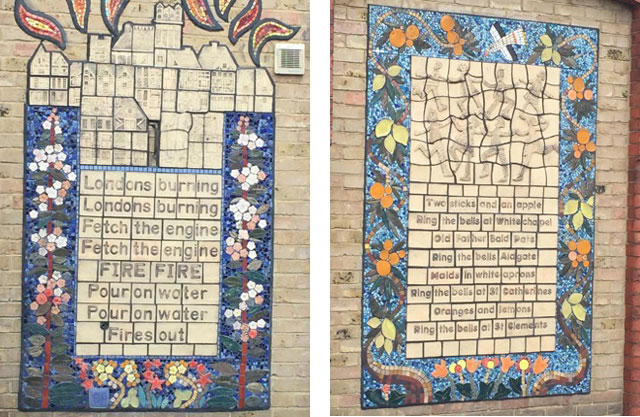 Londons burning
Londons burning
Fetch the engine
Fetch the engine
FIRE FIRE
Pour on water
Pour on water
Fires out
Two sticks and an apple
Ring the bells at Whitechapel
Old Father Bald Pate
Ring the bells Aldgate
Maids in white aprons
Ring the bells at St Catherines
Oranges and lemons
Ring the bells at St Clements